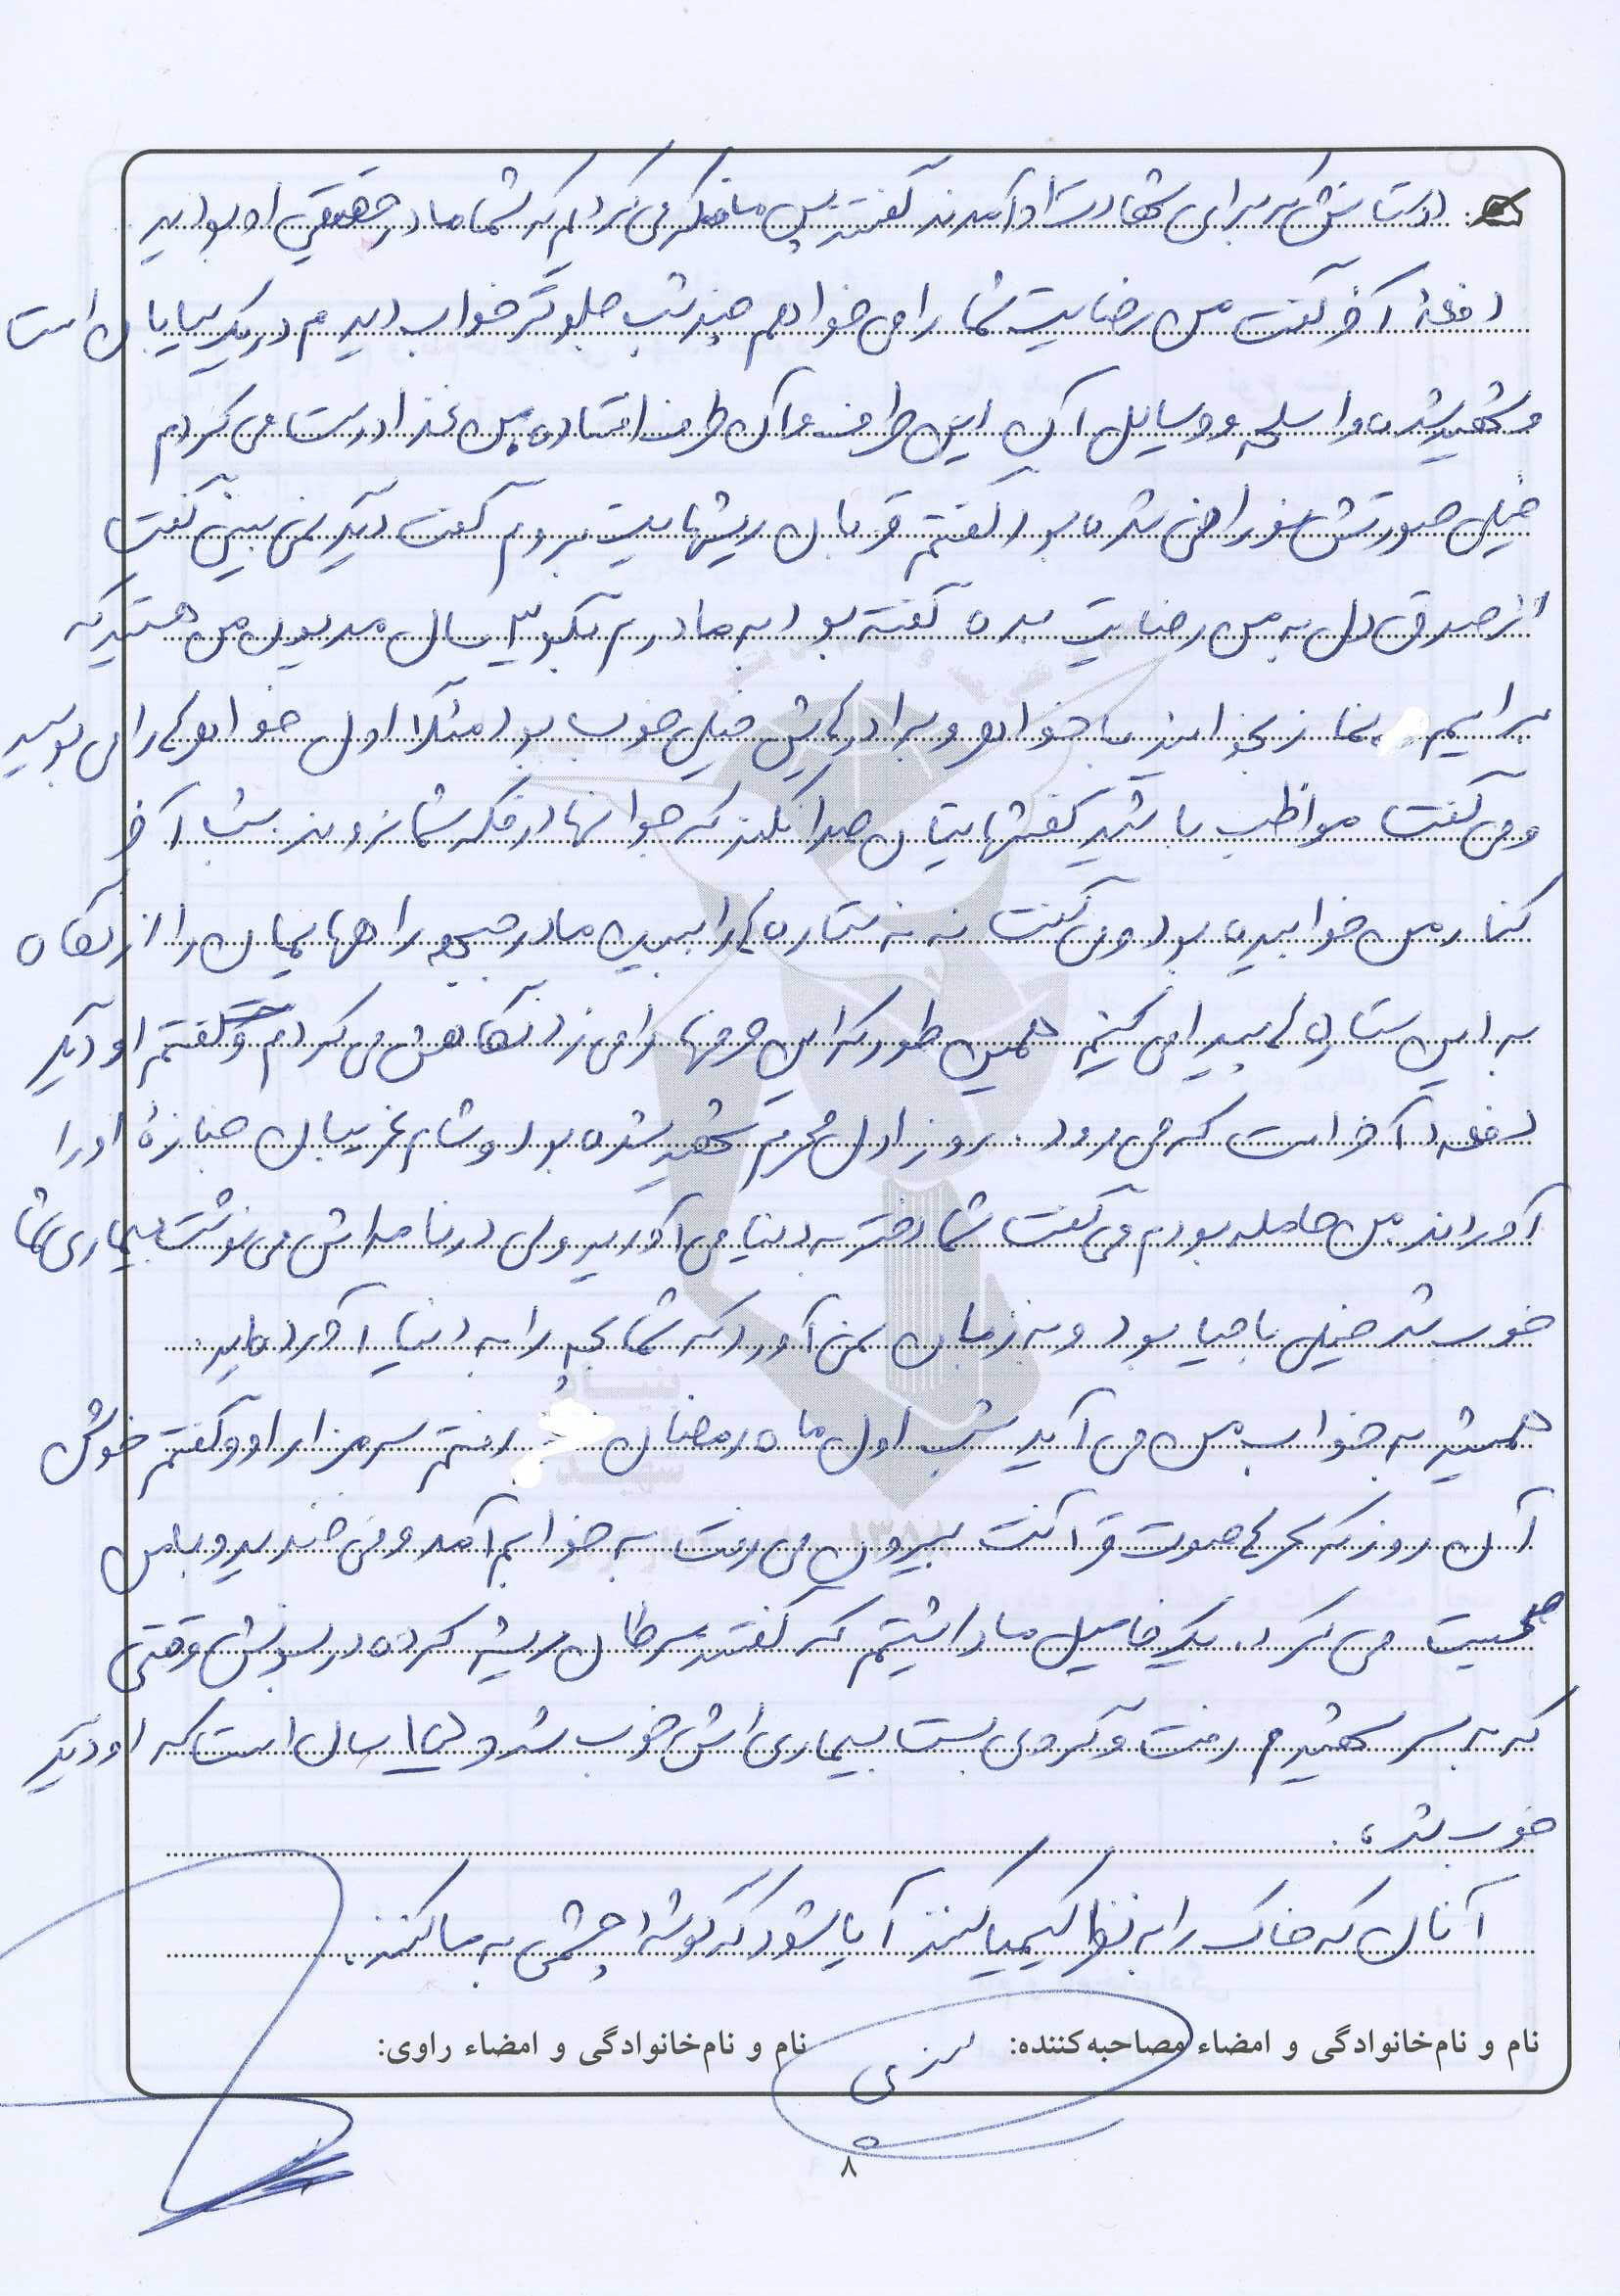 دوستانش که برای شهادت او آمدند گفتند پس ما فکر می کردیم که شما مادر حقیقی او بودید
دفعهٔ آخر گفت من رضایت شما را می خواهم چند شب جلوتر خواب دیدم در یک بیابان است
و شهید شده و اسلحه و وسایل آن این طرف و آن طرف افتاده من غذا درست می کردم
خیلی صورتش نورانی شده بود گفتم قربان ریشهایت بروم گفت دیگر نمی بینی گفت
از صدق دل به من رضایت بده گفته بود به مادرم بگو ۳ سال مدیون من هستید که
برایم نماز بخوانید با خواهر و برادرهایش خیلی خوب بود مثلا اول خواهرها را می بوسید
و می گفت مواظب باشید کفشهایتان صدا نکند که جوانها در فکر شما نروند شب آخر
کنار من خوابیده بود و می گفت ننه ستاره ها را ببین ما در جبهه راههایمان را از نگاه
به این ستاره ها پیدا می کنیم همین طور که این حرفها را می زد نگاهش می کردم و گفتم او دیگر
دفعه آخر است که می رود. روز اول محرم شهید شده بود و شام غریبان جنازهٔ او را
آوردند من حامله بودم می گفت شما دختر به دنیا می آورید ولی در نامه اش می نوشت بیماری شما
خوب شد خیلی با حیا بود و به زبان نمی آورد که شما بچه را به دنیا آورده اید.
همیشه به خواب من می آید شب اول ماه رمضان رفتم سر مزار او و گفتم خوش
آن روز که سحرها صوت قرآنت بیرون می رفت به خوابم آمد و می خندید و با من
صحبت می کرد. یک فامیل ما داشتیم که گفتند سرطان ریشه کرده در بدنش وقتی
که به سر شهیدم رفت و گروی بست بیماری اش خوب شد و الان سال است که او دیگر
خوب شده.
آنان که خاک را به نظر کیمیا کنند آیا شود که گوشه چشمی به ما کنند.
نام و نام‌خانوادگی و امضاء مصاحبه‌کننده: نام و نام‌خانوادگی و امضاء راوی:
۸